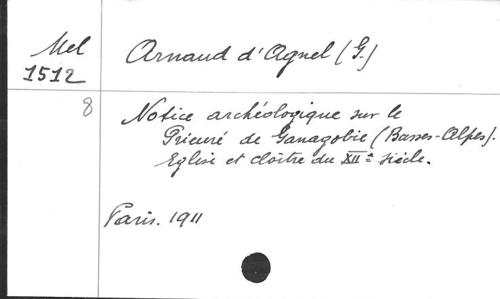 Mel
1512
Arnaud d'Agnel (G.)
8
Notice archéologique sur le
Prieuré de Ganagobie (Basses-Alpes).
Eglise et cloître du XIIe siècle.
Paris. 1911